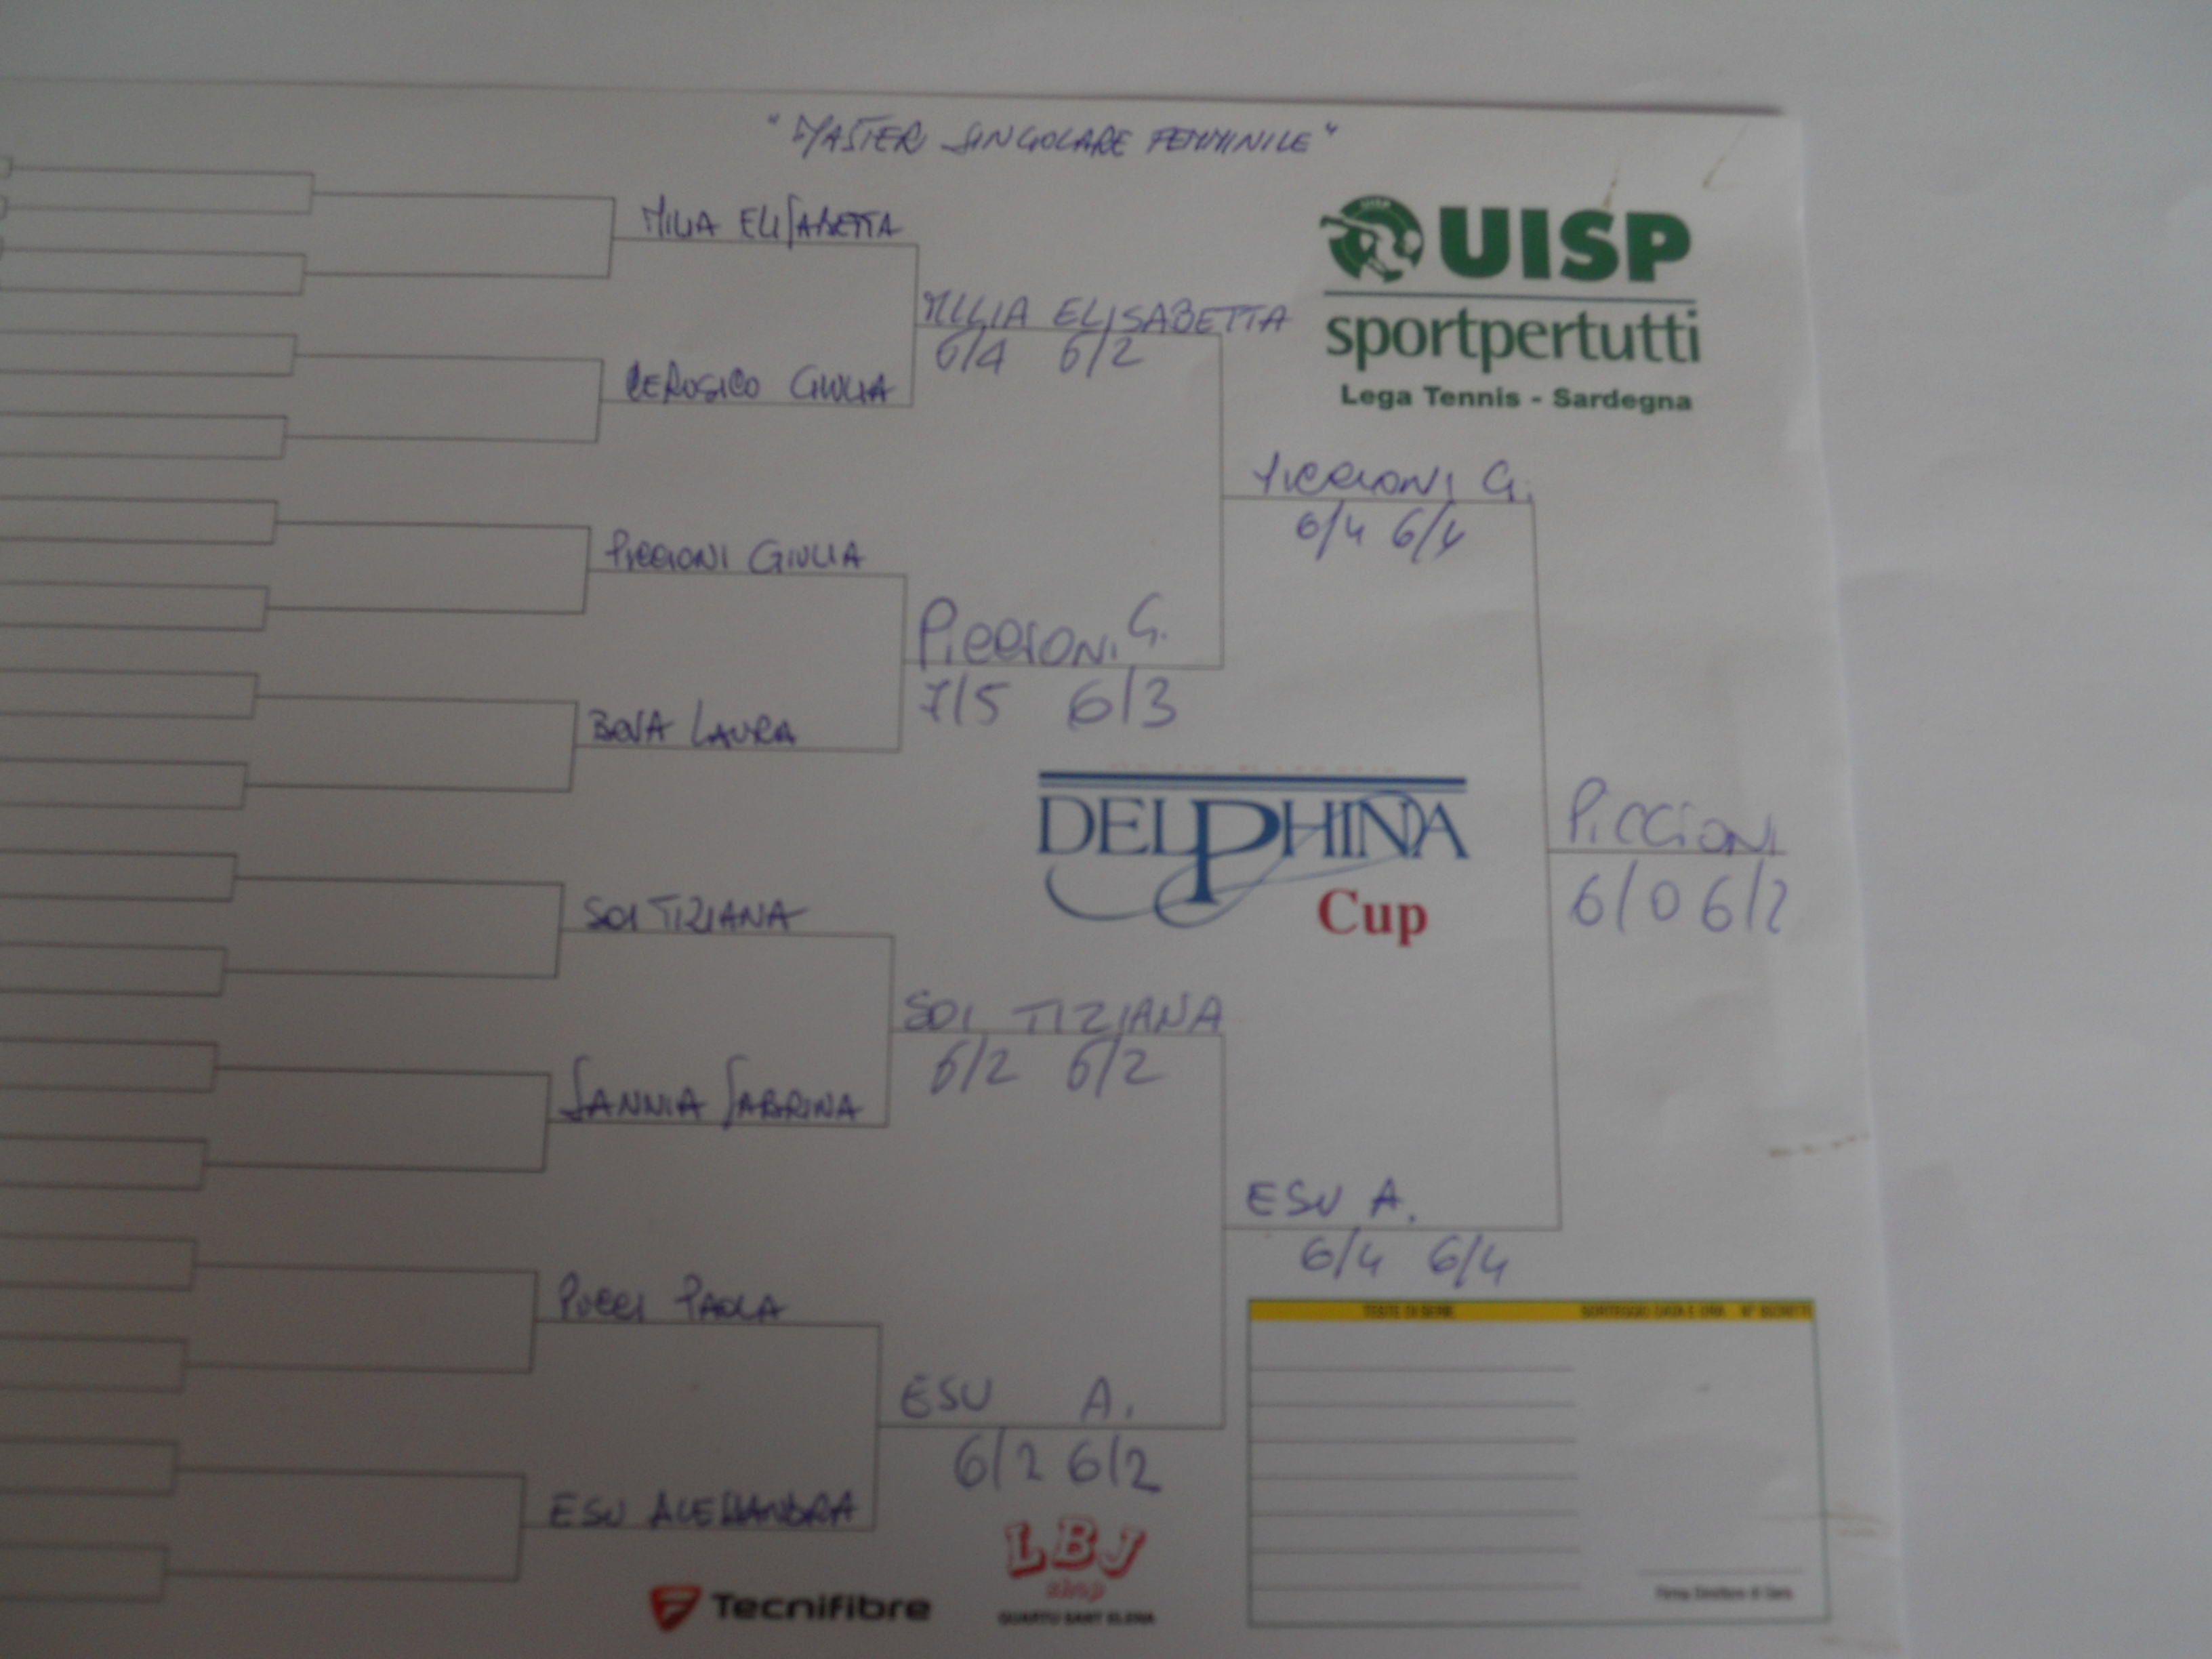 "MASTER SINGOLARE FEMMINILE"
MILIA ELISABETTA
UISP
sportpertutti
Lega Tennis - Sardegna
MILIA ELISABETTA
6/4 6/2
GIULIA
PICCIONI G.
6/4 6/4
PICCIONI GIULIA
PICCIONI G.
7/5 6/3
BOVA LAURA
DELPHINA
Cup
PICCIONI
6/0 6/2
SOI TIZIANA
SOI TIZIANA
6/2 6/2
SANNIA SABRINA
ESU A.
6/4 6/4
PUCCI PAOLA
TESTE DI SERIE
SORTEGGIO DATA E ORA
ESU A.
6/2 6/2
ESU ALESSANDRA
LBJ
shop
QUARTU SANT ELENA
Tecnifibre
Firma Direttore di Gara